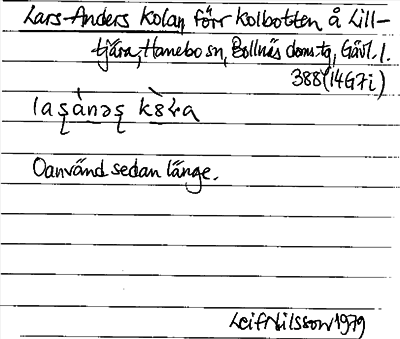 Lars-Anders kolan, förr kolbotten å Lill-
tjära, Hanebo sn, Bollnäs doms.tg, Gävl. l.
388 (14G7i)
Oanvänd sedan länge.
Leif Nilsson 1979